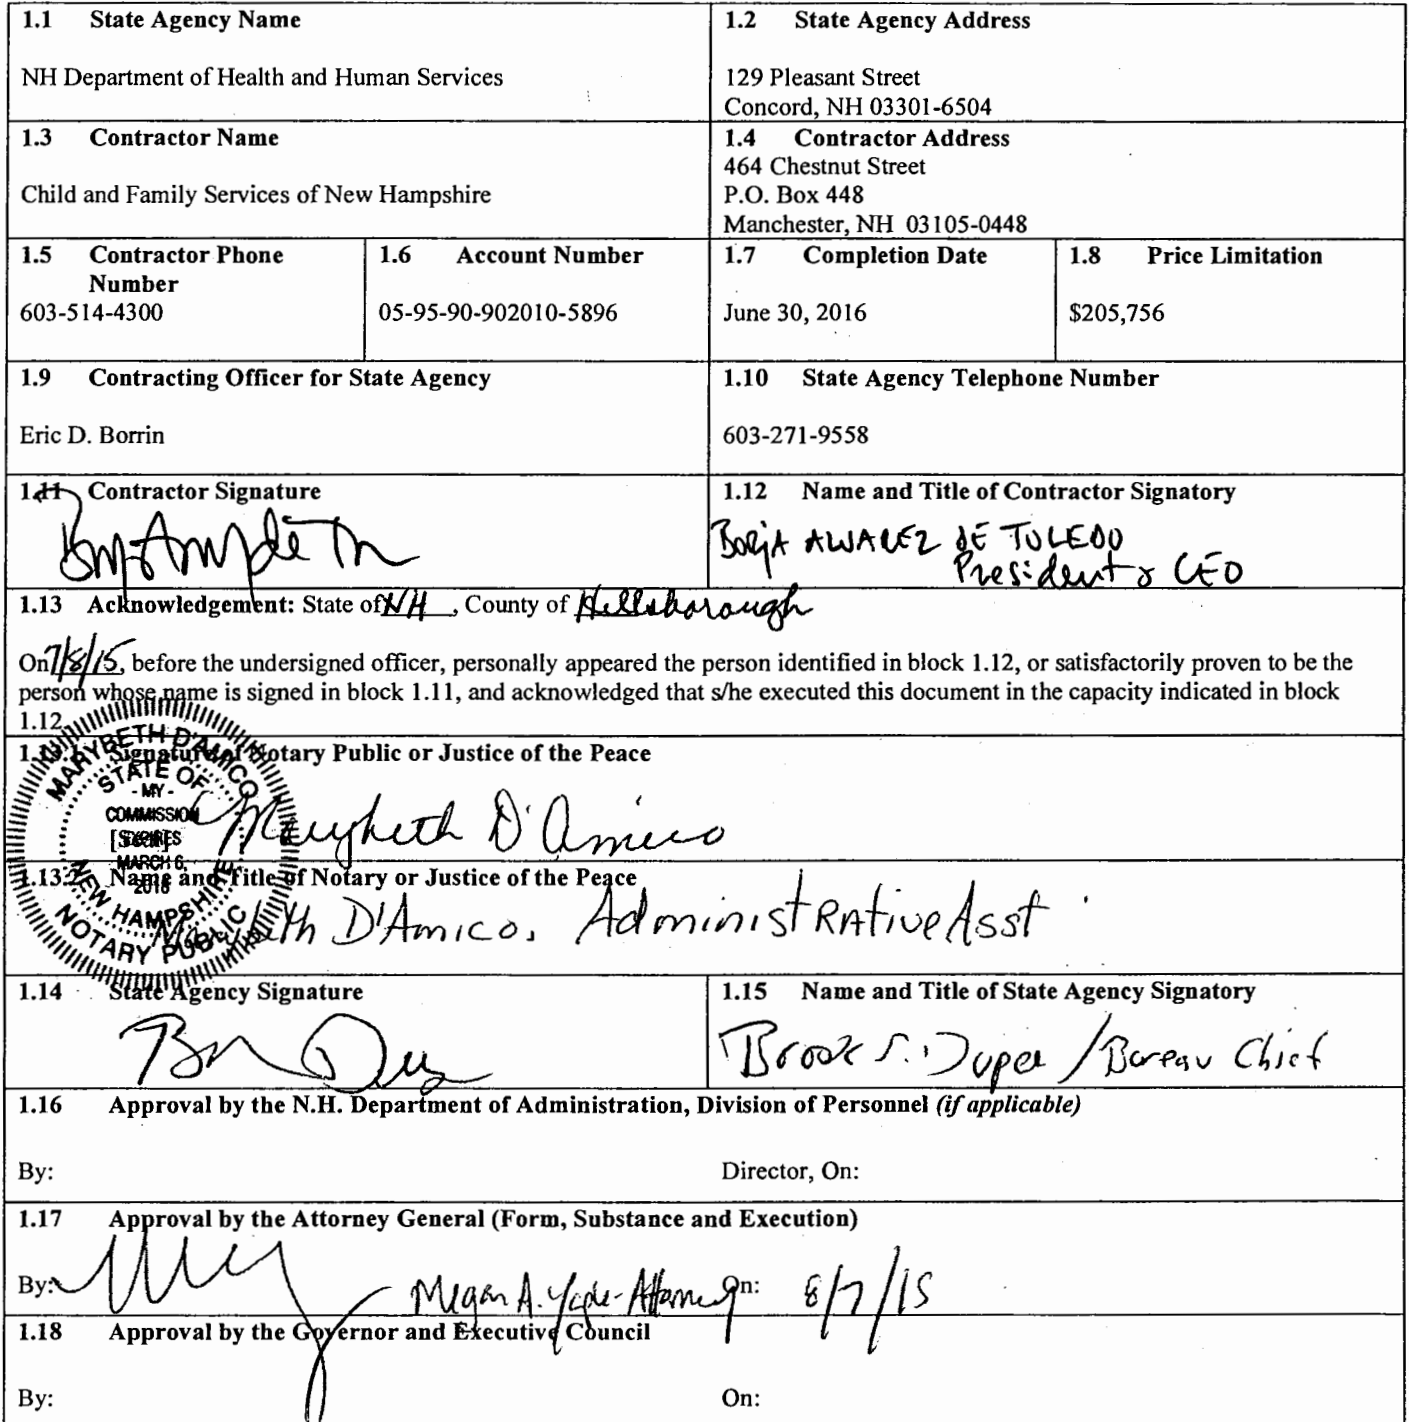 1.1 State Agency Name
NH Department of Health and Human Services
1.2 State Agency Address
129 Pleasant Street
Concord, NH 03301-6504
1.3 Contractor Name
Child and Family Services of New Hampshire
1.4 Contractor Address
464 Chestnut Street
P.O. Box 448
Manchester, NH 03105-0448
1.5 Contractor Phone
Number
603-514-4300
1.6 Account Number
05-95-90-902010-5896
1.7 Completion Date
June 30, 2016
1.8 Price Limitation
$205,756
1.9 Contracting Officer for State Agency
Eric D. Borrin
1.10 State Agency Telephone Number
603-271-9558
1.11 Contractor Signature
1.12 Name and Title of Contractor Signatory
Borja ALVAREZ DE TOLEDO
President & CEO
1.13 Acknowledgement: State of NH, County of Hillsborough
On 7/8/15, before the undersigned officer, personally appeared the person identified in block 1.12, or satisfactorily proven to be the
person whose name is signed in block 1.11, and acknowledged that s/he executed this document in the capacity indicated in block
1.12.
Signature of Notary Public or Justice of the Peace
MARYBETH D'AMICO
STATE OF
- MY -
COMMISSION
EXPIRES
MARCH 6,
NEW HAMPSHIRE
NOTARY PUBLIC
[Seal]
Marybeth D'Amico
1.13.2 Name and Title of Notary or Justice of the Peace
Marybeth D'Amico, Administrative Asst
1.14 State Agency Signature
1.15 Name and Title of State Agency Signatory
Brook S. Dupee / Bureau Chief
1.16 Approval by the N.H. Department of Administration, Division of Personnel (if applicable)
By:
Director, On:
1.17 Approval by the Attorney General (Form, Substance and Execution)
By: Megan A. Yaple - Attorney
On: 8/7/15
1.18 Approval by the Governor and Executive Council
By:
On: